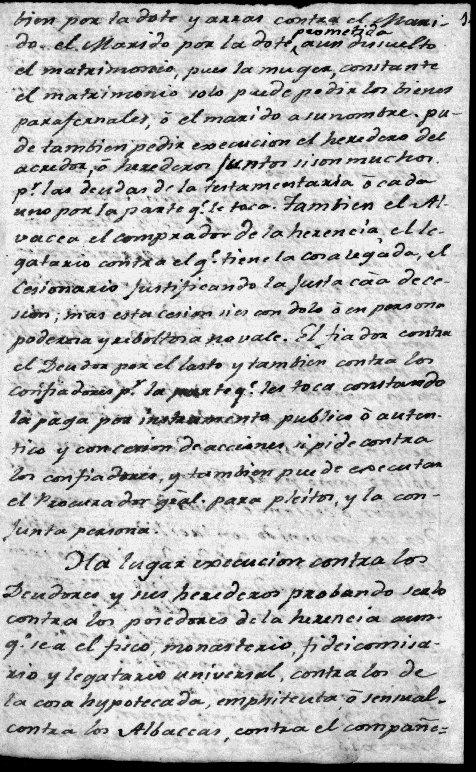 bien por la dote y arras contra el Mari-
do. el Marido por la dote prometida, aun disuelto
el matrimonio, pues la muger, constante
el matrimonio solo puede pedir los bienes
parafernales, ò el marido a su nombre. pu-
de tambien pedir execucion el heredero del
acredor, ò herederos Juntos si son muchos.
pr. las deudas de la testamentaria ò cada
uno por la parte q.e le toca. Tambien el Al-
vacea el comprador de la herencia el le-
gatario contra el q.e tiene la cosa legada, el
Cesionario Justificando la Justa caa de ce-
sion; mas esta cesion si es con dolo ò en persona
poderosa y reboltosa no vale. El fiador contra
el Deudor por el lasto y tambien contra los
confiadores pr. la parte q.e les toca constando
la paga por instrumento publico ò auten-
tico y con cesion de acciones, si pide contra
los confiadores, y tambien puede executar
el Procurador gral. para pleitos, y la con-
Junta persona.
Ha lugar execucion contra los
Deudores y sus herederos probando serlo
contra los posedores de la herencia aun-
q.e sea el fisco, monasterio, fideicomisa-
rio y legatario universal, contra los de
la cosa hypotecada, emphiteuta, ò sensual-
contra los Albaceas, contra el compañe=